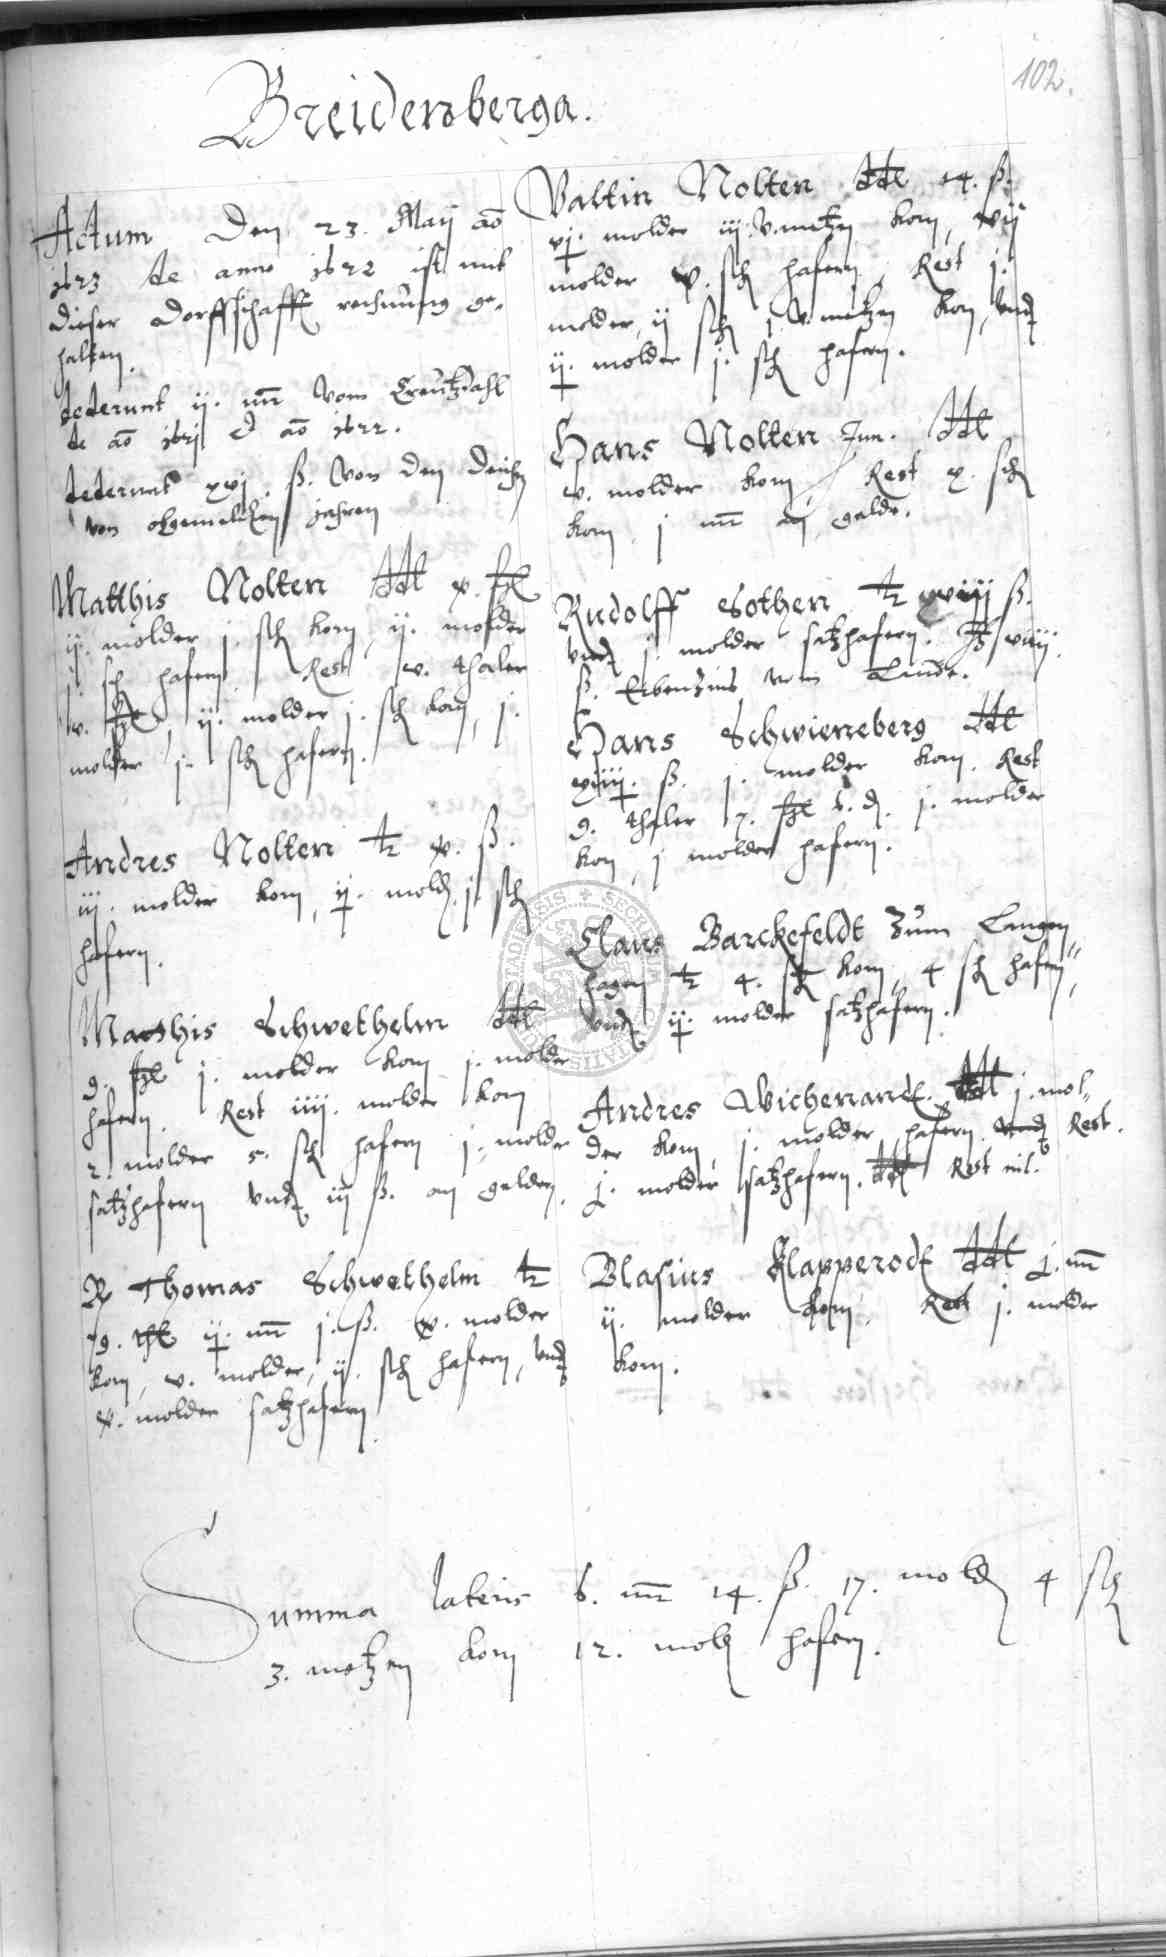 102.
Breidenberga.
Actum Den 23. Maij ao
1623 de anno 1622 ist mit
dieser dorffschafft rechnung ge-
halten.
dederunt ij. mr vom Creutzdahl
de ao 1621 et ao 1622.
dederunt xvj. ß. von den deichen
von obgemelten jahren
Matthis Nolten ddt x. ßl
ij. molder j. sch korn, ij. molder
j. sch hafern. Rest v. thaler
v. ßl, ij. molder j. sch korn, j.
molder j. sch hafern.
Andres Nolten dt x. ß.
iij. molder korn, ij. mold. j. sch
hafern.
Matthis Schwethelm ddt
9. ßl j. molder korn j. molder
hafern. Rest iiij. molder korn
2. molder 5. sch hafern j. molder
satzhafern undt iij ß. an gelden.
R Thomas Schwethelm dt
ij. mr j. ß. v. molder
korn, v. molder, ij. sch hafern, undt
x. molder satzhafern.
Valtin Nolten ddt 14. ß.
vj. molder iij. v. metzen korn, vij
molder v. sch hafern, Rest j.
molder, ij sch j. v. metzen korn, undt
ij. molder j. sch hafern.
Hans Nolten Jun. ddt
v. molder korn, Rest x. sch
korn, j mr an gelde.
Rudolff Sothen dt ß.
undt j. molder satzhafern.
ß. Erbenzins vom Lande.
Hans Schwieneberg ddt
xiiij. ß. j. molder korn. Rest
9. thaler 7. ßl 6. d. j. molder
korn, j molder hafern.
Claus Barckefeldt Zum Langen-
hagen dt 4. sch korn, 4 sch hafern,
undt ij. molder satzhafern.
Andres Wichenandt ddt j. mol-
der korn, j. molder hafern. undt Rest.
j. molder satzhafern. ddt Rest nil.
Blasius Klapperodt ddt j. mr
ij. molder korn, Rest j. molder
korn.
Summa lateris 6. mr 14. ß. 17. mold 4 sch
3. metzen korn 12. mold hafern.